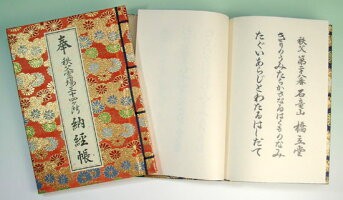 奉
秩父霊場三十四ヶ所
納経帳
秩父 第廿八番 石竜山 橋立堂
きりのうみたちかさなるはくものなみ
たぐいあらじとわたるはしだて